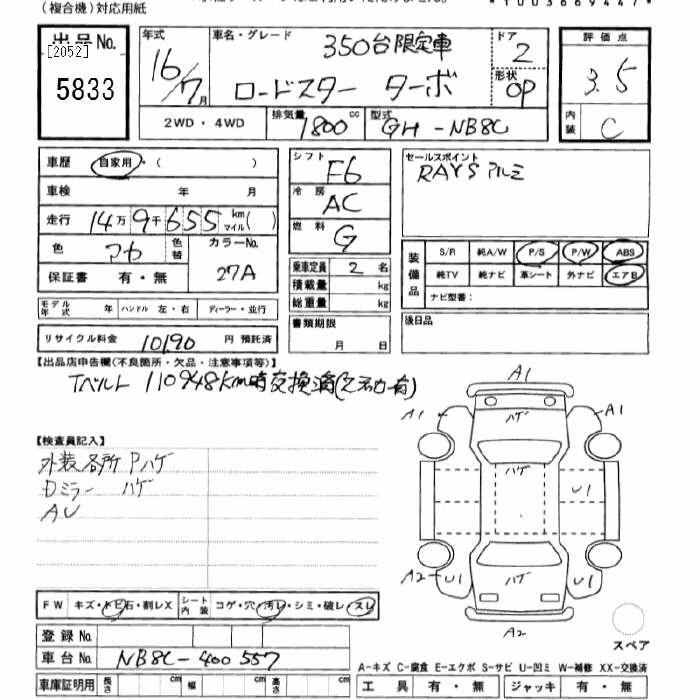 (複合機)対応用紙
*1003669447*
出品No. [2052] 5833
年式 16/7月
車名・グレード 350台限定車
ロードスター ターボ
ドア 2
形状 OP
評価点 3.5
内装 C
2WD・4WD
排気量 1800cc
型式 GH-NB8C
車歴 自家用・( )
車検 年 月
走行 14万9千655 km マイル( )
色 アカ 色替 カラーNo. 27A
保証書 有・無
シフト F6
冷房 AC
燃料 G
乗車定員 2名
積載量 kg
総重量 kg
セールスポイント
RAYSアルミ
装備品 S/R 純A/W P/S P/W ABS
純TV 純ナビ 革シート 外ナビ エアB
ナビ型番:
モデル年式 年 ハンドル 左・右 ディーラー・並行
リサイクル料金 10190 円 預託済
書類期限 月 日
後日品
【出品店申告欄(不良箇所・欠品・注意事項等)】
Tベルト 110948km時交換済
A1
A1 ハゲ A1
ハゲ
U1
A2 U1 ハゲ U1
A2
【検査員記入】
外装各所Pハゲ
Dミラー ハゲ
AU
FW キズ・トビ石・割レX シート内装 コゲ・穴・汚レ・シミ・破レ・スレ
スペア
登録No.
車台No. NB8C-400557
車庫証明用 長さ cm 幅 cm 高さ cm
A-キズ C-腐食 E-エクボ S-サビ U-凹ミ W-補修 XX-交換済
工具 有・無 ジャッキ 有・無